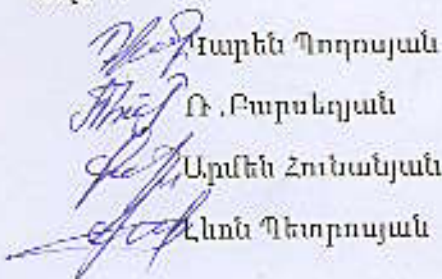 Կարեն Պողոսյան
Ռ .Բարսեղյան
Արմեն Հունանյան
Լևոն Պետրոսյան